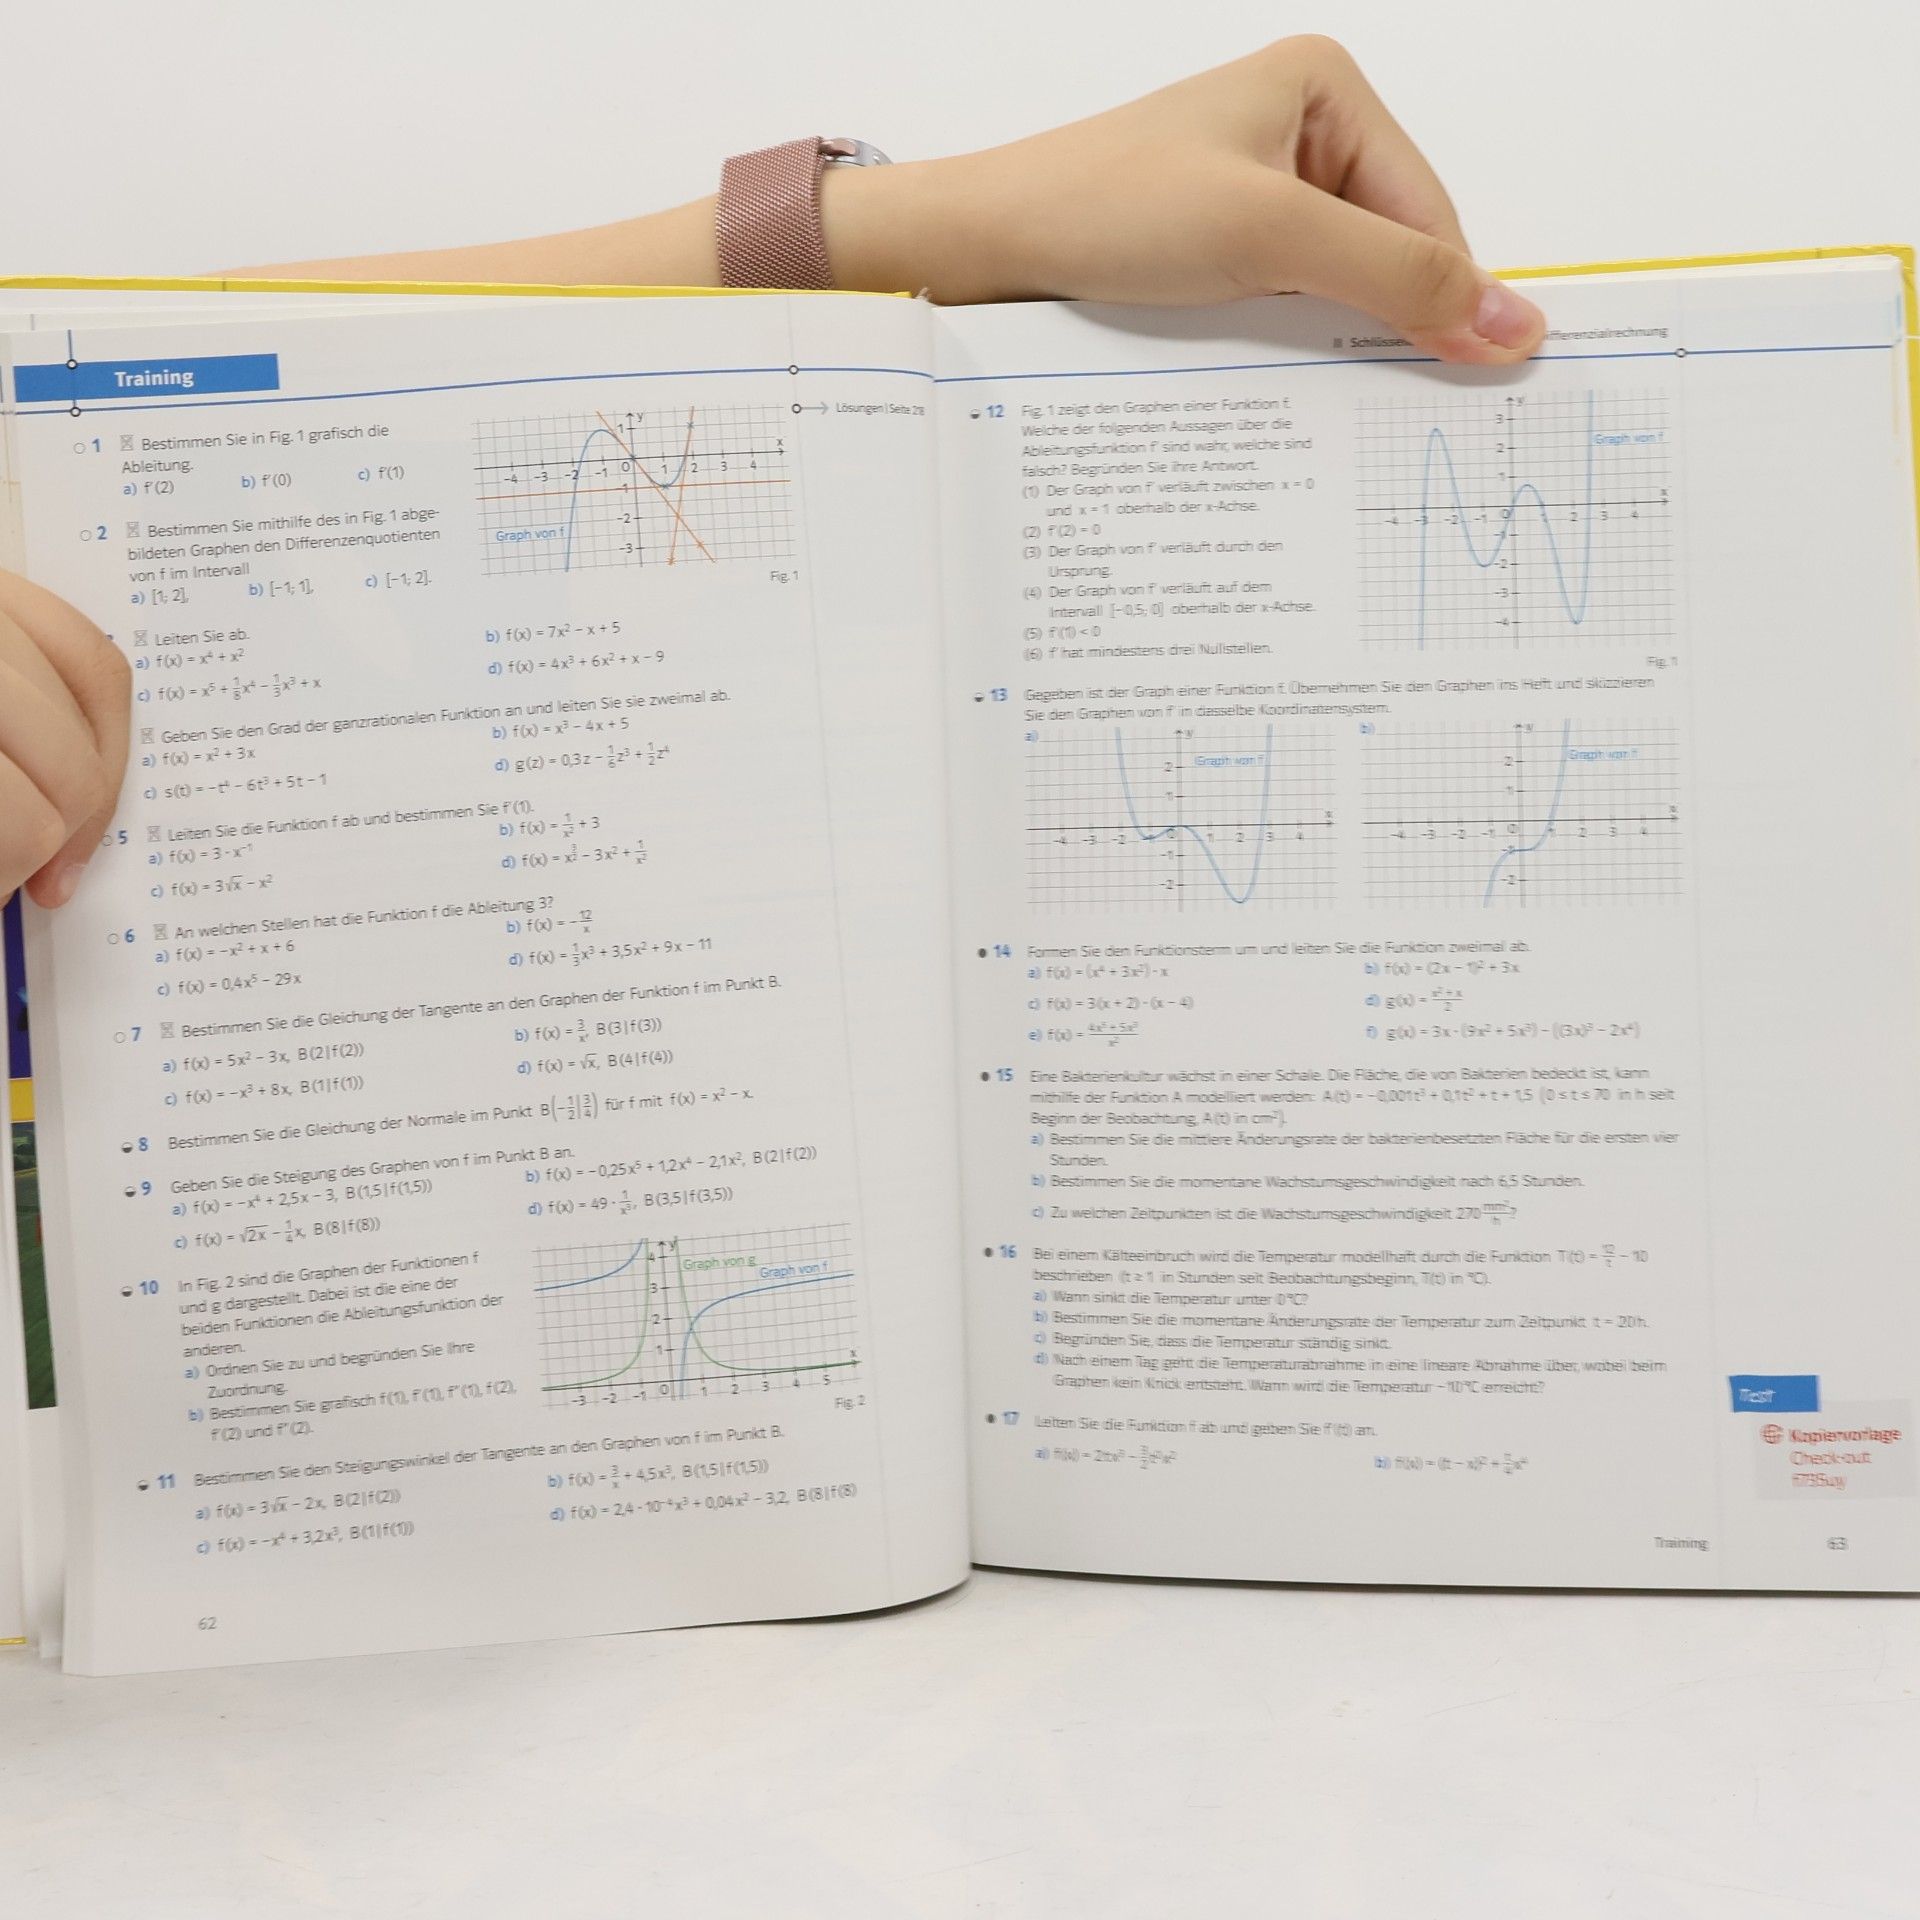 Training
Lösungen | Seite 218
1 Bestimmen Sie in Fig. 1 grafisch die
Ableitung.
a) f'(2) b) f'(0) c) f'(1)
2 Bestimmen Sie mithilfe des in Fig. 1 abge-
bildeten Graphen den Differenzenquotienten
von f im Intervall
a) [1; 2], b) [−1; 1], c) [−1; 2].
Graph von f
Fig. 1
Leiten Sie ab.
a) f(x) = x⁴ + x² b) f(x) = 7x² − x + 5
c) f(x) = x⁵ + 1/8x⁴ − 1/3x³ + x d) f(x) = 4x³ + 6x² + x − 9
Geben Sie den Grad der ganzrationalen Funktion an und leiten Sie sie zweimal ab.
a) f(x) = x² + 3x b) f(x) = x³ − 4x + 5
c) s(t) = −t⁴ − 6t³ + 5t − 1 d) g(z) = 0,3z − 1/6z³ + 1/2z⁴
5 Leiten Sie die Funktion f ab und bestimmen Sie f'(1).
a) f(x) = 3 · x⁻¹ b) f(x) = 1/x² + 3
c) f(x) = 3√x − x² d) f(x) = − 3x² + 1/x²
6 An welchen Stellen hat die Funktion f die Ableitung 3?
a) f(x) = −x² + x + 6 b) f(x) = −12/x
c) f(x) = 0,4x⁵ − 29x d) f(x) = 1/3x³ + 3,5x² + 9x − 11
7 Bestimmen Sie die Gleichung der Tangente an den Graphen der Funktion f im Punkt B.
a) f(x) = 5x² − 3x, B(2|f(2)) b) f(x) = 3/x, B(3|f(3))
c) f(x) = −x³ + 8x, B(1|f(1)) d) f(x) = √x, B(4|f(4))
8 Bestimmen Sie die Gleichung der Normale im Punkt B(−1/2|3/4) für f mit f(x) = x² − x.
9 Geben Sie die Steigung des Graphen von f im Punkt B an.
a) f(x) = −x⁴ + 2,5x − 3, B(1,5|f(1,5)) b) f(x) = −0,25x⁵ + 1,2x⁴ − 2,1x², B(2|f(2))
c) f(x) = √2x − 1/4x, B(8|f(8)) d) f(x) = 49 · 1/x³, B(3,5|f(3,5))
10 In Fig. 2 sind die Graphen der Funktionen f
und g dargestellt. Dabei ist die eine der
beiden Funktionen die Ableitungsfunktion der
anderen.
a) Ordnen Sie zu und begründen Sie Ihre
Zuordnung.
b) Bestimmen Sie grafisch f(1), f'(1), f''(1), f(2),
f'(2) und f''(2).
Graph von g
Graph von f
Fig. 2
11 Bestimmen Sie den Steigungswinkel der Tangente an den Graphen von f im Punkt B.
a) f(x) = 3√x − 2x, B(2|f(2)) b) f(x) = 3/x + 4,5x³, B(1,5|f(1,5))
c) f(x) = −x⁴ + 3,2x³, B(1|f(1)) d) f(x) = 2,4 · 10⁻⁴x³ + 0,04x² − 3,2, B(8|f(8))
62
ifferenzialrechnung
12 Fig. 1 zeigt den Graphen einer Funktion f.
Welche der folgenden Aussagen über die
Ableitungsfunktion f' sind wahr, welche sind
falsch? Begründen Sie ihre Antwort.
(1) Der Graph von f' verläuft zwischen x = 0
und x = 1 oberhalb der x-Achse.
(2) f'(2) = 0
(3) Der Graph von f' verläuft durch den
Ursprung.
(4) Der Graph von f' verläuft auf dem
Intervall [−0,5; 0] oberhalb der x-Achse.
(5) f'(1) < 0
(6) f' hat mindestens drei Nullstellen.
Graph von f
Fig. 1
13 Gegeben ist der Graph einer Funktion f. Übernehmen Sie den Graphen ins Heft und skizzieren
Sie den Graphen von f' in dasselbe Koordinatensystem.
a) Graph von f b) Graph von f
14 Formen Sie den Funktionsterm um und leiten Sie die Funktion zweimal ab.
a) f(x) = (x⁴ + 3x²) · x b) f(x) = (2x − 1)² + 3x
c) f(x) = 3(x + 2) · (x − 4) d) g(x) = (x² + x)/2
e) f(x) = f) g(x) = 3x · (9x² + 5x³) − ((3x)³ − 2x⁴)
15 Eine Bakterienkultur wächst in einer Schale. Die Fläche, die von Bakterien bedeckt ist, kann
mithilfe der Funktion A modelliert werden: A(t) = −0,001t³ + 0,1t² + t + 1,5 (0 ≤ t ≤ 70 in h seit
Beginn der Beobachtung, A(t) in cm²).
a) Bestimmen Sie die mittlere Änderungsrate der bakterienbesetzten Fläche für die ersten vier
Stunden.
b) Bestimmen Sie die momentane Wachstumsgeschwindigkeit nach 6,5 Stunden.
c) Zu welchen Zeitpunkten ist die Wachstumsgeschwindigkeit 270 mm²/h?
16 Bei einem Kälteeinbruch wird die Temperatur modellhaft durch die Funktion T(t) = 12/t − 10
beschrieben (t ≥ 1 in Stunden seit Beobachtungsbeginn, T(t) in °C).
a) Wann sinkt die Temperatur unter 0°C?
b) Bestimmen Sie die momentane Änderungsrate der Temperatur zum Zeitpunkt t = 20h.
c) Begründen Sie, dass die Temperatur ständig sinkt.
d) Nach einem Tag geht die Temperaturabnahme in eine lineare Abnahme über, wobei beim
Graphen kein Knick entsteht. Wann wird die Temperatur −10°C erreicht?
17 Leiten Sie die Funktion f ab und geben Sie an.
Test
Kopiervorlage
Check-out
Training 63